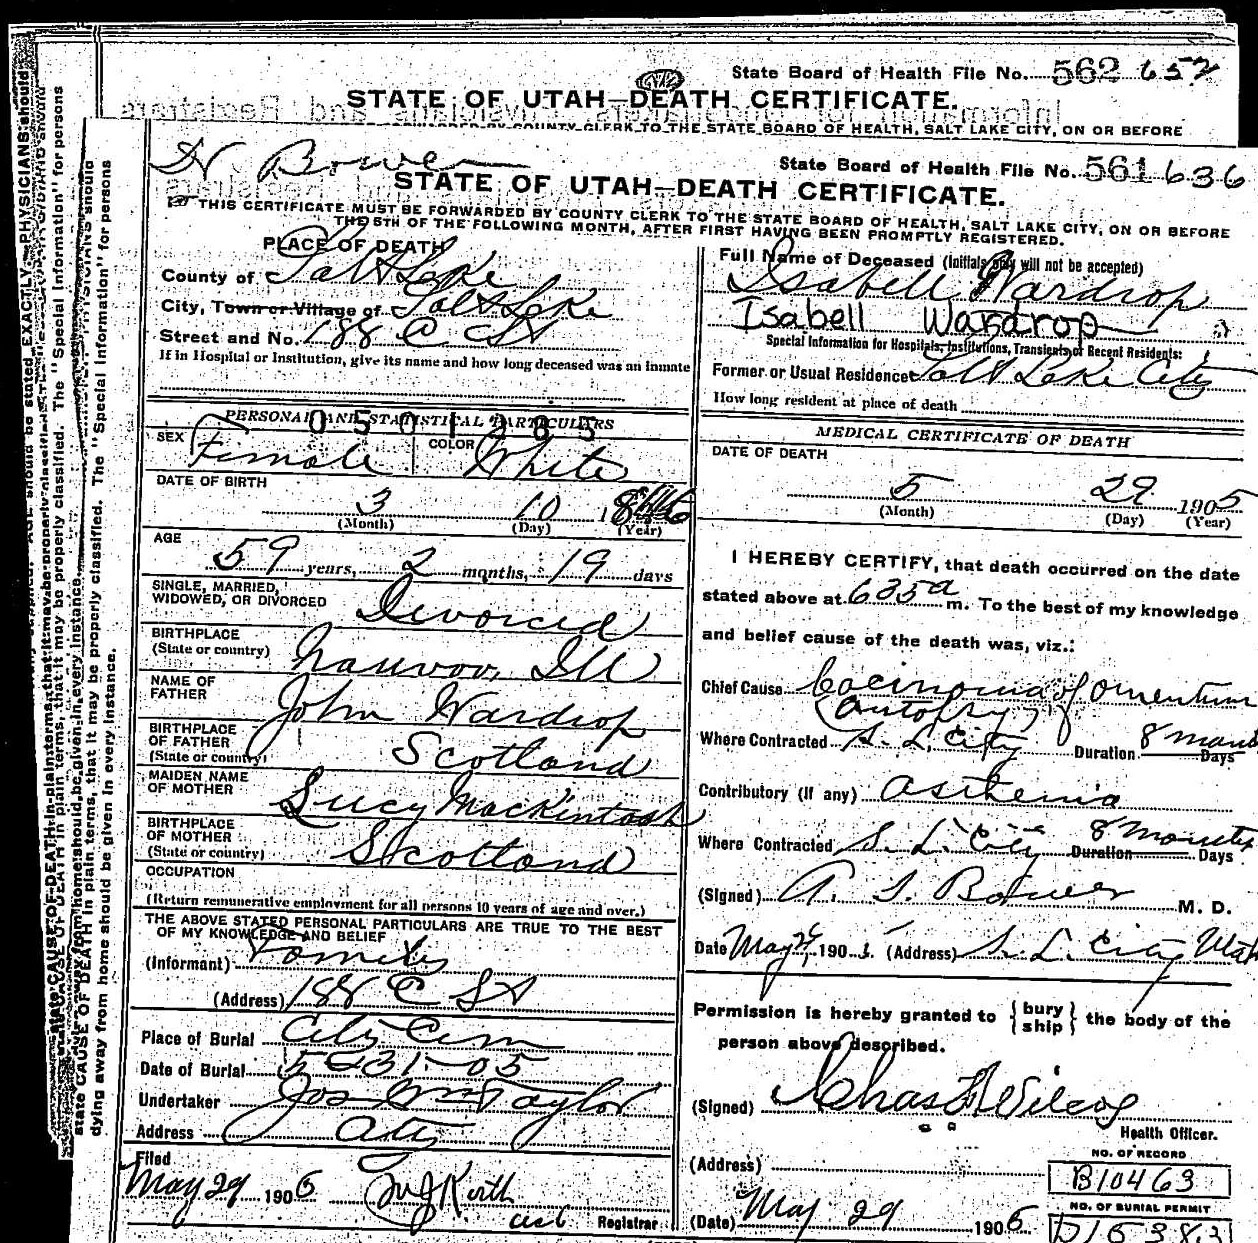 State Board of Health File No. 562 652
STATE OF UTAH—DEATH CERTIFICATE.
Information for Undertakers, Physicians and Registrars
COUNTY CLERK TO THE STATE BOARD OF HEALTH, SALT LAKE CITY, ON OR BEFORE
Bower
State Board of Health File No. 561 636
STATE OF UTAH—DEATH CERTIFICATE.
THIS CERTIFICATE MUST BE FORWARDED BY COUNTY CLERK TO THE STATE BOARD OF HEALTH, SALT LAKE CITY, ON OR BEFORE
THE 5TH OF THE FOLLOWING MONTH, AFTER FIRST HAVING BEEN PROMPTLY REGISTERED.
PLACE OF DEATH
County of Salt Lake
City, Town or Village of Salt Lake
Street and No. 188 C St
If in Hospital or Institution, give its name and how long deceased was an inmate
PERSONAL AND STATISTICAL PARTICULARS
0501285
SEX Female COLOR White
DATE OF BIRTH
3 10 1846
(Month) (Day) (Year)
AGE
59 years, 2 months, 19 days
SINGLE, MARRIED,
WIDOWED, OR DIVORCED Divorced
BIRTHPLACE
(State or country) Nauvoo, Ill
NAME OF
FATHER John Wardrop
BIRTHPLACE
OF FATHER Scotland
(State or country)
MAIDEN NAME
OF MOTHER Lucy Mackintosh
BIRTHPLACE
OF MOTHER Scotland
(State or country)
OCCUPATION
(Return remunerative employment for all persons 10 years of age and over.)
THE ABOVE STATED PERSONAL PARTICULARS ARE TRUE TO THE BEST
OF MY KNOWLEDGE AND BELIEF
(Informant) Family
(Address) 188 C St
Place of Burial City Cem
Date of Burial 5-31-05
Undertaker Jos Wm Taylor
Address City
Filed
May 29 1905
Registrar
Full Name of Deceased (Initials only will not be accepted)
Isabell Wardrop
Isabell Wardrop
Special Information for Hospitals, Institutions, Transients or Recent Residents:
Former or Usual Residence Salt Lake City
How long resident at place of death
MEDICAL CERTIFICATE OF DEATH
DATE OF DEATH
5 29 1905
(Month) (Day) (Year)
I HEREBY CERTIFY, that death occurred on the date
stated above at 635 a m. To the best of my knowledge
and belief cause of the death was, viz.:
Chief Cause Carcinoma of omentum
(autopsy)
Where Contracted S. L. City Duration 8 Days
Contributory (if any) Asthenia
Where Contracted S. L. City Duration 8 months Days
(Signed) A. S. Bower M. D.
Date May 1905 (Address) S. L. City Utah
Permission is hereby granted to {bury ship} the body of the
person above described.
(Signed) Chas F Wilcox
Health Officer.
(Address)
NO. OF RECORD
B10463
(Date) May 29 1905
NO. OF BURIAL PERMIT
state CAUSE OF DEATH in plain terms, that it may be properly classified. The "Special Information" for persons
dying away from home should be given in every instance.